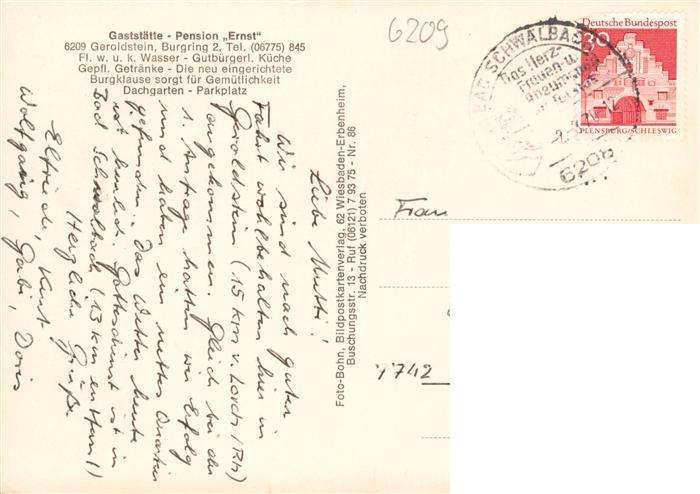 Gaststätte - Pension „Ernst"
6209 Geroldstein, Burgring 2, Tel. (06775) 845
Fl. w. u. k. Wasser - Gutbürgerl. Küche
Gepfl. Getränke - Die neu eingerichtete
Burgklause sorgt für Gemütlichkeit
Dachgarten - Parkplatz
Liebe Mutti!
Wir sind nach guter
Fahrt wohlbehalten hier in
Geroldstein (15 km v. Lorch / Rh)
angekommen. Gleich bei der
1. Anfrage hatten wir Erfolg
und haben ein nettes Quartier
gefunden. Das Wetter heute
ist Gottesdienst ist in
Bad Schwalbach (13 km entfernt)
Herzliche Grüße
Elfriede, Kurt
Wolfgang, Gabi, Doris
Foto-Bohn, Bildpostkartenverlag, 62 Wiesbaden-Erbenheim,
Buschungsstr. 13 - Ruf (06121) 7 93 75 - Nr. 86
Nachdruck verboten
6209
BAD SCHWALBACH
Das Herz-
Frauen- u.
6208
Deutsche Bundespost
30
FLENSBURG/SCHLESWIG
Frau
7742